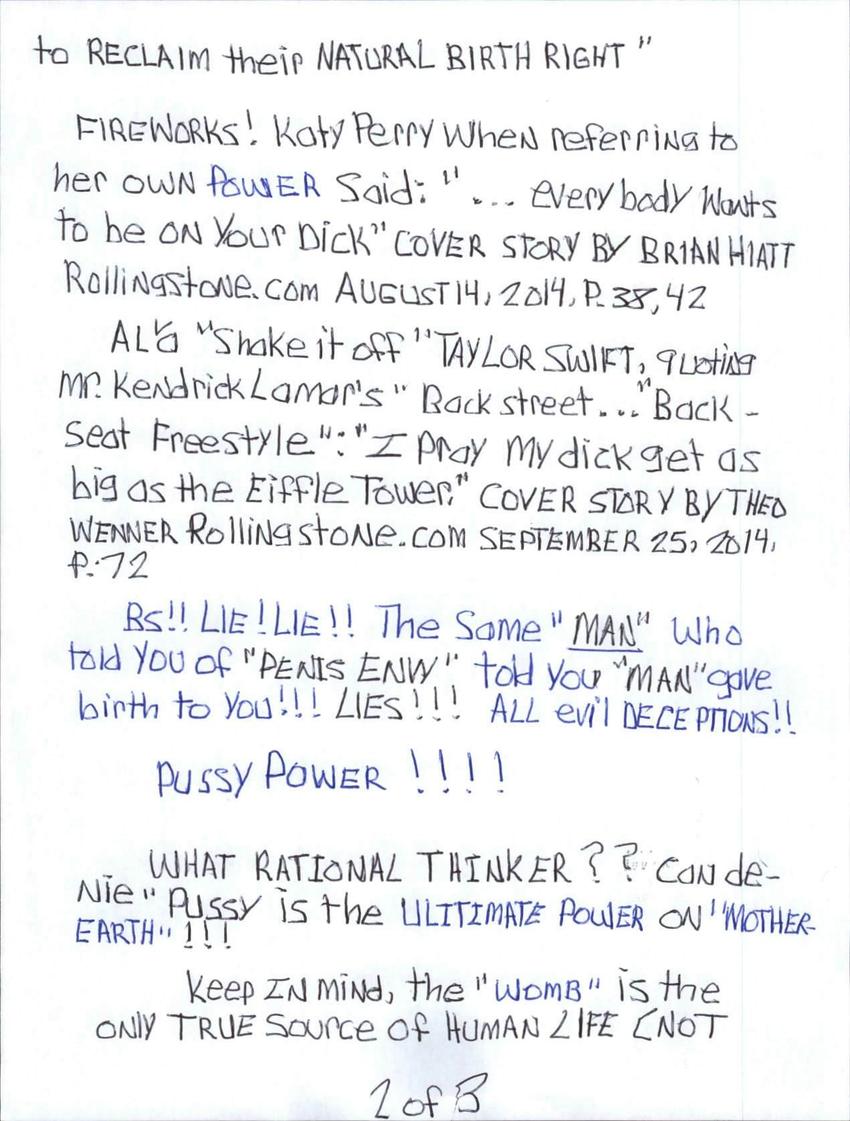 to RECLAIM their NATURAL BIRTH RIGHT"
FIREWORKS! Katy Perry when referring to
her own POWER Said: "... everybody wants
to be ON Your Dick" COVER STORY BY BRIAN HIATT
Rollingstone.com AUGUST 14, 2014, P. 38, 42
"Shake it off" TAYLOR SWIFT, quoting
Mr. Kendrick Lamar's "Back street..." "Back-
seat Freestyle": "I pray my dick get as
big as the Eiffle Tower," COVER STORY BY THEO
WENNER Rollingstone.com SEPTEMBER 25, 2014,
P. 72
BS!! LIE! LIE!! The Same "MAN" Who
told you of "PENIS ENVY" told you "MAN" gave
birth to You!!! LIES!!! ALL evil DECEPTIONS!!
PUSSY POWER !!!!
WHAT RATIONAL THINKER ?? can de-
Nie "Pussy is the ULITIMATE POWER ON "MOTHER-
EARTH" !!!
Keep IN MIND, the "WOMB" is the
ONLY TRUE Source of HUMAN LIFE (NOT
2 of 3